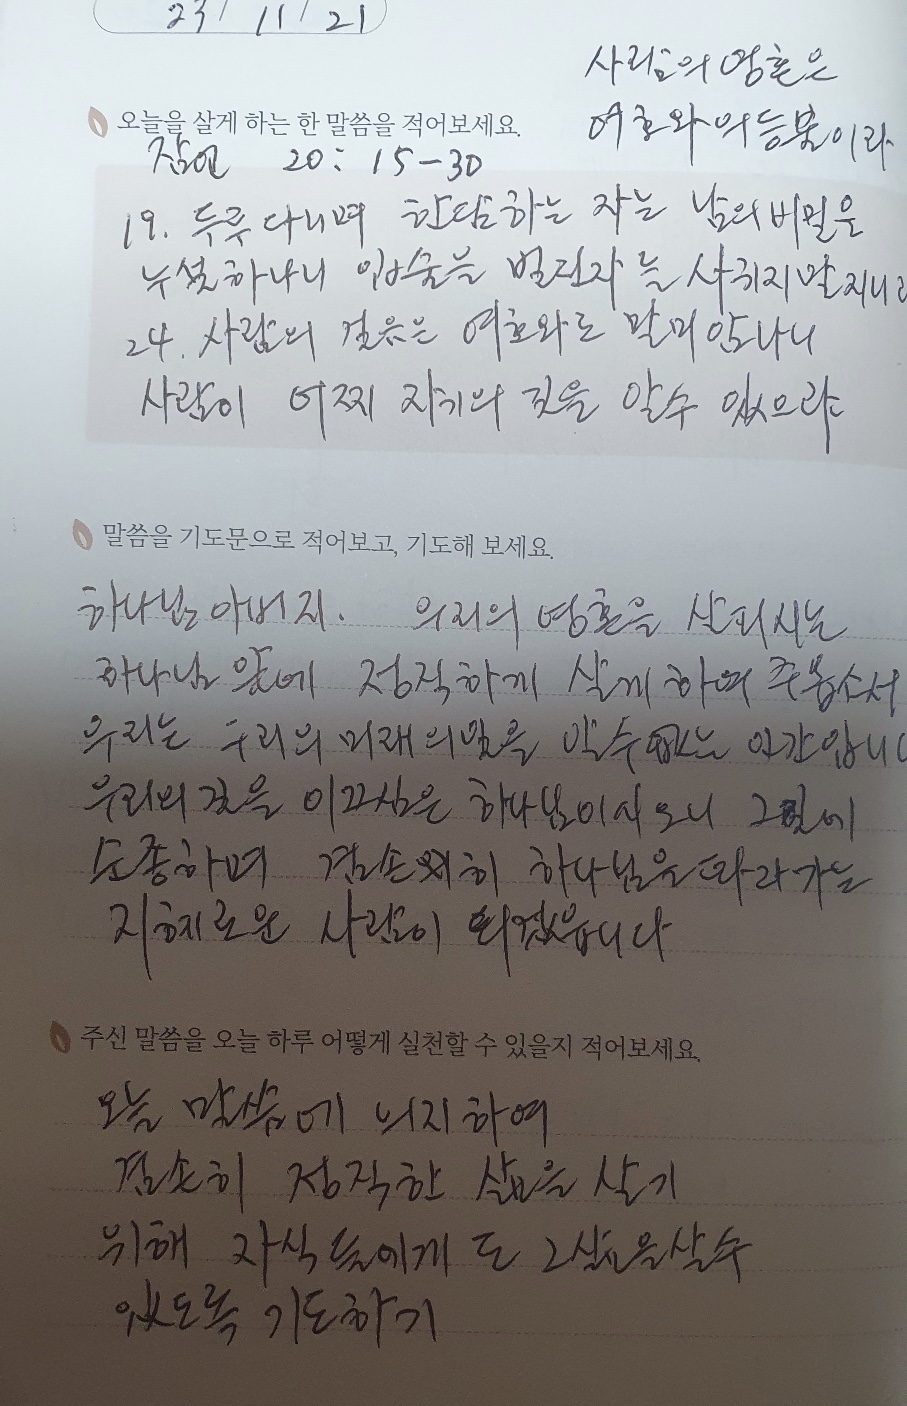 23/11/21
사람의 영혼은
여호와의 등불이라
오늘을 살게 하는 한 말씀을 적어보세요.
잠언 20:15-30
19. 두루 다니며 한담하는 자는 남의 비밀을
누설하나니 입술을 벌린자는 사귀지 말지니라
24. 사람의 걸음은 여호와로 말미암나니
사람이 어찌 자기의 길을 알수 있으랴
말씀을 기도문으로 적어보고, 기도해 보세요.
하나님 아버지. 우리의 영혼을 살피시는
하나님 앞에 정직하게 살게 하여 주옵소서
우리는 우리의 미래의 일을 알수 없는 인간입니
우리의 길을 이끄심은 하나님이시오니 그 길에
순종하며 겸손히 하나님을 따라가는
지혜로운 사람이 되겠습니다
주신 말씀을 오늘 하루 어떻게 실천할 수 있을지 적어보세요.
오늘 말씀에 의지하여
겸손히 정직한 삶을 살기
위해 자식들에게도 그 삶을 살수
있도록 기도하기